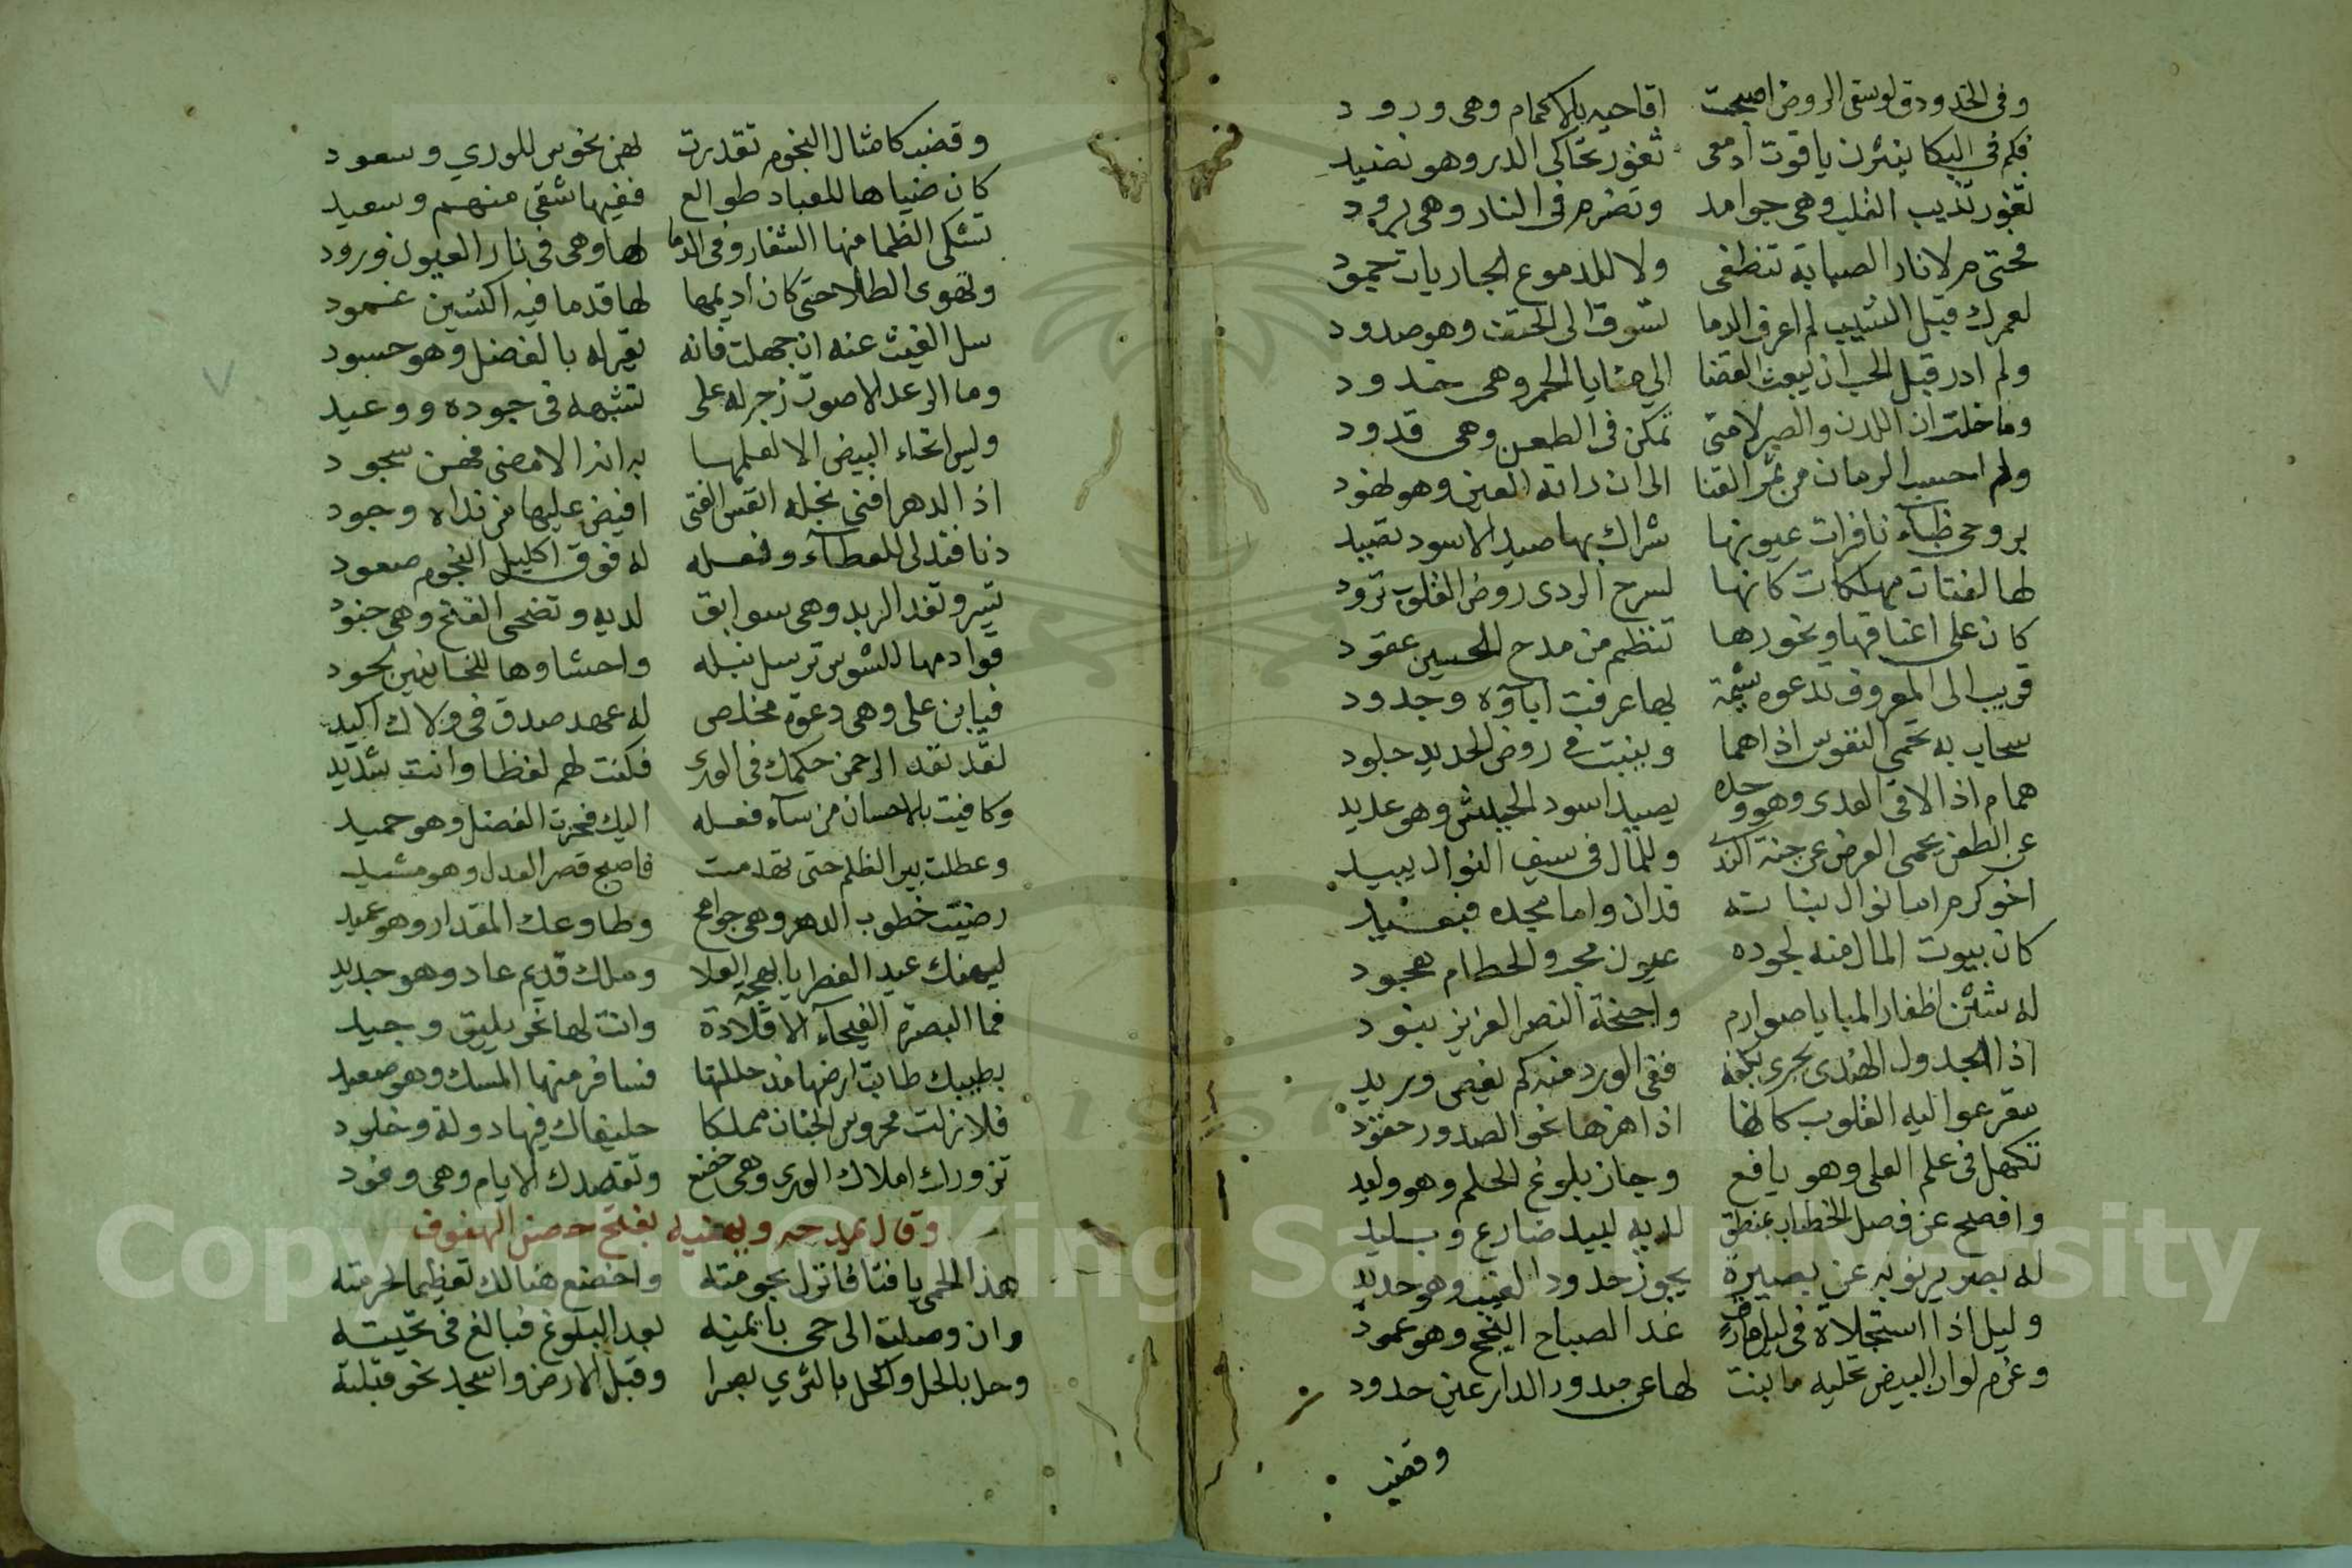 وفي الخد ودق لو سقى الروض اصبحت اقاحيه بالاكمام وهي ورود
فكم في البكا ينثرن ياقوت ادمعي ثغور تحاكي الدر وهو نضيد
ثغور تذيب القلب وهي جوامد وتضرم في النار وهي برود
فحتى م لا نار الصبابة تنطفي ولا للدموع الجاريات جمود
لعمرك قبل الشيب لم اعرف الدما تسوق الى الحتف وهو صدود
ولم ادر قبل الحب ان يبعث القضا الي منايا الحمر وهي خدود
وما خلت ان اللدن والصبر لامتي تمكن في الطعن وهي قدود
ولم احسب الرمان من ثمر القنا الى ان راته العين وهو نهود
بروحي ظباء نافرات عيونها شراك بها صيد الاسود تصيد
لها لفتات مهلكات كانها لسرح الردى روض القلوب ترود
كان على اعناقها ونحورها تنظم من مدح الحسين عقود
قريب الى المعروف تدعوه شيمة بها عرفت اباؤه وجدود
سحاب به تحمى النفوس اذا هما وينبت في روض الحديد جلود
همام اذا لاقى العدى وهو وحده يصيد اسود الجيش وهو عديد
عن الطعن يحمي العرض عن جنة الندى وللمال في سيف النوال يبيد
اخو كرم اما نوال بنانه فدان واما مجده فبعيد
كان بيوت المال منه لجوده عيون محب والحطام هجود
له شئن اظفار المنايا صوارم واجنحة النصر العزيز بنود
اذا الجدول الهندي يجري بكفه ففي الورد منه كم يغيص وريد
سقر عوا اليه القلوب كانها اذا هزها نحو الصدور حقود
تكهل في علم العلى وهو يافع وحاز بلوغ الحلم وهو وليد
وافصح عن فصل الخطاب بمنطق لديه لبيد ضارع وبليد
له بصر يرنو به عن بصيرة يجوز حدود الغيب وهو حديد
وليل اذا استجلاه في غدا الصباح النجح وهو عمود
وعزم لو ان البيض تحليه ما بنت لها عن صدور الدار عين حدود
وقضب
وقضب كامثال النجوم تقدرت بهن نحوس للورى وسعود
كان ضياها للعباد طوالع ففيها شقي منهم وسعيد
تشكى الظما منها الشفار وفي الدما لها وهي في نار العيون ورود
وتهوى الطلا حتى كان اديمها لها قدما فيه اكتسين غمود
سل الغيث عنه ان جهلت فانه يقر له بالفضل وهو حسود
وما الرعد الا صوت زجر له على تشبهه في جوده ووعيد
وليس انحناء البيض الا لعلمها به انه الامضى فهن سجود
اذا الدهر افنى نجله القس الفتى افيض عليها من نداه وجود
دنا فتدلى للعطاء وفعله له فوق اكليل النجوم صعود
تسير وتغد الربد وهي سوابق لديه وتضحى الفتح وهي جنود
قوادمها للشوس ترسل نبله واحشاوها للخائنين لحود
فيا ابن علي وهي دعوة مخلص له عهد صدق في ولاك اكيد
لقد نقد الرحمن حكمك في الورى فكنت لهم لفظا وانت شديد
وكافيت بالاحسان من ساء فعله اليك فحزت الفضل وهو حميد
وعطلت بير الظلم حتى تهدمت فاصبح قصر العدل وهو مشيد
رضيت خطوب الدهر وهي جوامح وطاوعك المقدار وهو عميد
ليهنك عيد الفطر يا بهجة العلا وملك قديم عاد وهو جديد
فما البصرة الفيحاء الا قلادة وانت لها نحر يليق وجيد
بطيبك طابت ارضها مذ حللتها فسافر منها المسك وهو صعيد
فلا زلت محروس الجناب مملكا حليفاك فيها دولة وخلود
تزورك املاك الورى وهي خضع وتقصدك الايام وهي وفود
وقال يمدحه ويهنيه بفتح حصن الهفوف
هذا الحمى يا فتا فانزل بحومته واخضع هنالك تعظيما لحرمته
وان وصلت الى حي بايمنه بعد البلوغ فبالغ في تحيته
وحل بالحل واكحل بالثرى بصرا وقبل الارض واسجد نحو قبلته